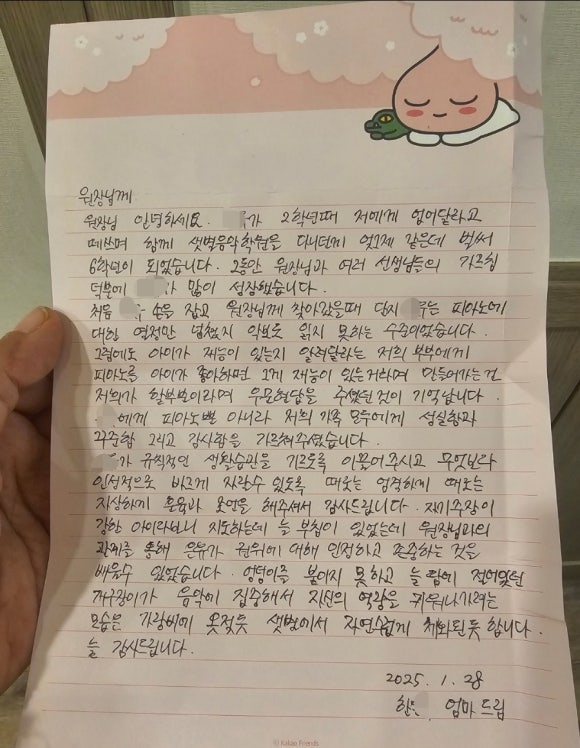 원장님께
원장님 안녕하세요. 가 2학년때 저에게 업어달라고
떼쓰며 함께 샛별음악학원을 다니던게 엊그제 같은데 벌써
6학년이 되었습니다. 그동안 원장님과 여러 선생님들의 가르침
덕분에 가 많이 성장했습니다.
처음 손을 잡고 원장님께 찾아갔을때 당시 주는 피아노에
대한 열정만 넘쳤지 악보도 읽지 못하는 수준이었습니다.
그럼에도 아이가 재능이 있는지 알려달라는 저희 부부에게
피아노를 아이가 좋아하면 그게 재능이 있는거라며 만들어가는건
저희가 할부분이라며 우문현답을 주셨던 것이 기억납니다.
에게 피아노뿐 아니라 저희 가족 모두에게 성실함과
꾸준함 그리고 감사함을 가르쳐주셨습니다.
가 규칙적인 생활습관을 기르도록 이끌어주시고 무엇보다
인성적으로 바르게 자랄수 있도록 때로는 엄격하게 때로는
자상하게 훈육과 조언을 해주셔서 감사드립니다. 자기주장이
강한 아이라보니 지도하는데 늘 부침이 있었는데 원장님과의
관계를 통해 은우가 권위에 대해 인정하고 존중하는 것을
배울수 있었습니다. 엉덩이를 붙이지 못하고 늘 땀에 젖어있던
개구장이가 음악에 집중해서 자신의 역량을 키워나가려는
모습은 가랑비에 옷젖듯 샛별에서 자연스럽게 체화된듯 합니다.
늘 감사드립니다.
2025. 1. 28
한 엄마 드림
© Kakao Friends